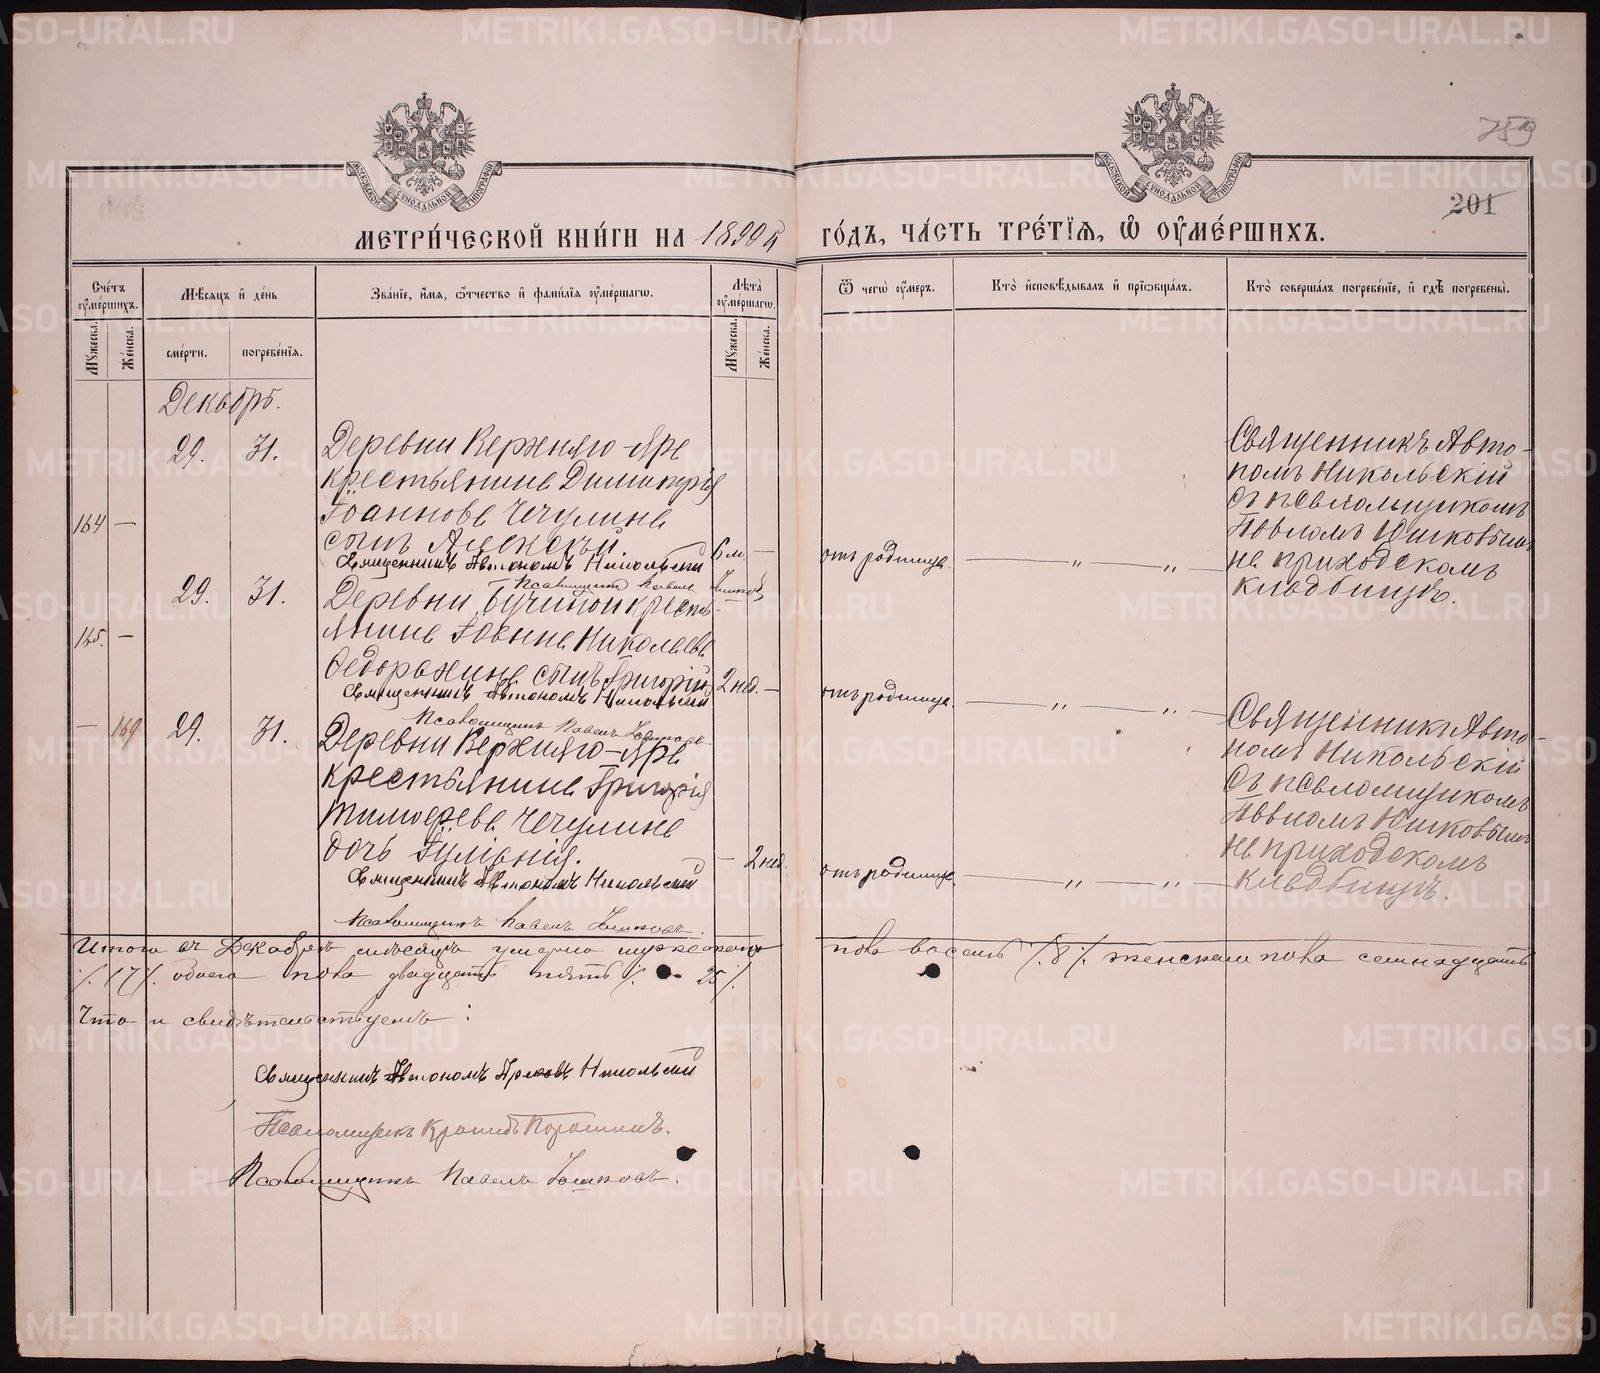 METRIKI.GASO-URAL.RU
789
201
МОСКОВСКОЙ СѴНОДАЛЬНОЙ ТИПОГРАФІИ
МЕТРИ́ЧЕСКОЙ КНИ́ГИ НА 1899й ГО́ДЪ, ЧА́СТЬ ТРЕ́ТІѦ, Ѡ ОУМЕ́РШИХЪ.
Сче́тъ оумершихъ.
Мꙋжеска. Же́нска.
Мѣсяцъ и де́нь
сме́рти. погребе́нїя.
Зва́нїе, и́мя, ѻтчество и фами́лїя оуме́ршагѡ.
Лѣта̀ оуме́ршагѡ.
Мꙋжеска. Же́нска.
Ѿ чегѡ̀ оумеръ.
Кто̀ исповѣдывалъ и прїѡбща́лъ.
Кто̀ соверша́лъ погребе́нїе, и гдѣ̀ погребены̀.
Декабрь.
164 — 29. 31. Деревни Верхняго-Яра
крестьянина Димитрія
Іоаннова Чечулина
сынъ Алексѣй. 6 м. — отъ родимца. — „ — „ —
Священникъ Автономъ Никольскій
Псаломщикъ Павелъ Юшковъ
Священникъ Авто-
номъ Никольскій
съ псаломщикомъ
Павломъ Юшковымъ
на приходскомъ
кладбищѣ.
165. — 29. 31. Деревни Бучиной кресть-
янина Іоанна Николаева
Федорахина сынъ Григорій 2 нед. — отъ родимца. — „ — „ —
Священникъ Автономъ Никольскій
Псаломщикъ Павелъ Юшковъ.
— 169 29. 31. Деревни Верхняго-Яра
крестьянина Григорія
Тимоѳеева Чечулина
дочь Іуліанія. — 2 нед. отъ родимца. — „ — „ —
Священникъ Автономъ Никольскій
Псаломщикъ Павелъ Юшковъ.
Священникъ Авто-
номъ Никольскій
съ псаломщикомъ
Павломъ Юшковымъ
на приходскомъ
кладбищѣ.
Итого въ Декабрѣ мѣсяцѣ умерло мужескаго пола восемь /.8/. женскаго пола семнадцать
/.17/. обоего пола двадцать пять /. 25/.
Что и свидѣтельствуемъ:
Священникъ Автономъ Никольскій
Псаломщикъ Порошинъ.
Псаломщикъ Павелъ Юшковъ.